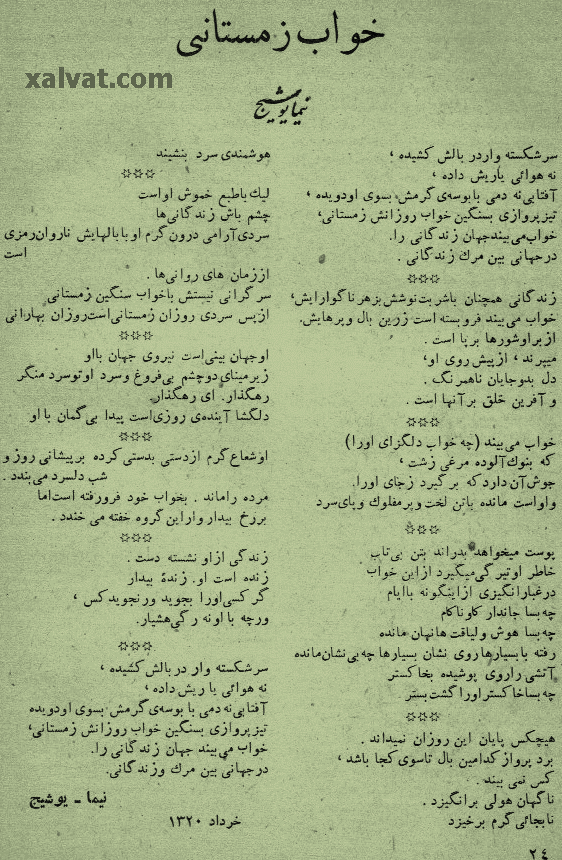 خواب زمستانی
xalvat.com
نیما یوشیج
سرشکسته واردر بالش کشیده ،
نه هوائی یاریش داده ،
آفتابی نه دمی با بوسه‌ی گرمش بسوی اودویده ،
تیز پروازی بسنگین خواب روزانش زمستانی،
خواب می‌بیند جهان زندگانی را.
درجهانی بین مرك زندگانی .
✩✩✩
زندگانی همچنان باشربت نوشش بزهر ناگوارایش،
خواب می بیند فروبسته است زرین بال وپرهایش.
ازبراوشورها برپا است .
میپرند ، ازپیش روی او،
دل بدوجایان ناهمرنگ .
و آفرین خلق برآنها است .
✩✩✩
خواب می بیند (چه خواب دلگزای اورا)
که بنوك آلوده مرغی زشت ،
جوش آن دارد که بر گیرد زجای اورا.
واواست مانده باتن لخت و پرمفلوك وپای سرد
✩✩✩
پوست میخواهد بدراند بتن بی‌تاب
خاطر اوتیرگی میگیرد ازاین خواب
درغبارانگیزی ازاینگونه باایام
چه بسا جاندار کاو ناکام
چه بسا هوش ولیاقت هانهان مانده
رفته با بسیارها روی نشان بسیارها چه بی نشان مانده
آتشی را روی پوشیده بخاکستر
چه بساخاکستر اورا گشت بستر
✩✩✩
هیچکس پایان این روزان نمیداند .
برد پرواز کدامین بال تاسوی کجا باشد ،
کس نمی بیند .
ناگهان هولی برانگیزد .
نابجائی گرم برخیزد
هوشمندی سرد بنشیند
✩✩✩
لیك باطبع خموش اواست
چشم باش زندگانی‌ها
سردی آرامی درون گرم او با بالهایش ناروان رمزی
است
اززمان های روانی‌ها .
سرگرانی نیستش باخواب سنگین زمستانی
ازپس سردی روزان زمستانی است روزان بهارانی
✩✩✩
اوجهان بینی است نیروی جهان بااو
زیرمینای دوچشم بی‌فروغ وسرد او توسرد منگر
رهگذار. ای رهگذار.
دلگشا آینده‌ی روزی است پیدا بی‌گمان با او
✩✩✩
اوشعاع گرم ازدستی بدستی کرده برپیشانی روز و
شب دلسرد می‌بندد .
مرده راماند . بخواب خود فرورفته است اما
بررخ بیدار وار این گروه خفته می خندد .
✩✩✩
زندگی ازاو نشسته دست .
زنده است او. زندهٔ بیدار
گر کسی اورا بجوید ورنجوید کس ،
ورچه با او نه رگی هشیار.
✩✩✩
سرشکسته وار دربالش کشیده ،
نه هوائی یاریش داده ،
آفتابی نه دمی با بوسه‌ی گرمش بسوی اودویده
تیز پروازی بسنگین خواب روزانش زمستانی،
خواب می‌بیند جهان زندگانی را.
درجهانی بین مرك وزندگانی.
نیما ـ یوشیج
خرداد ۱۳۲۰
۲٤